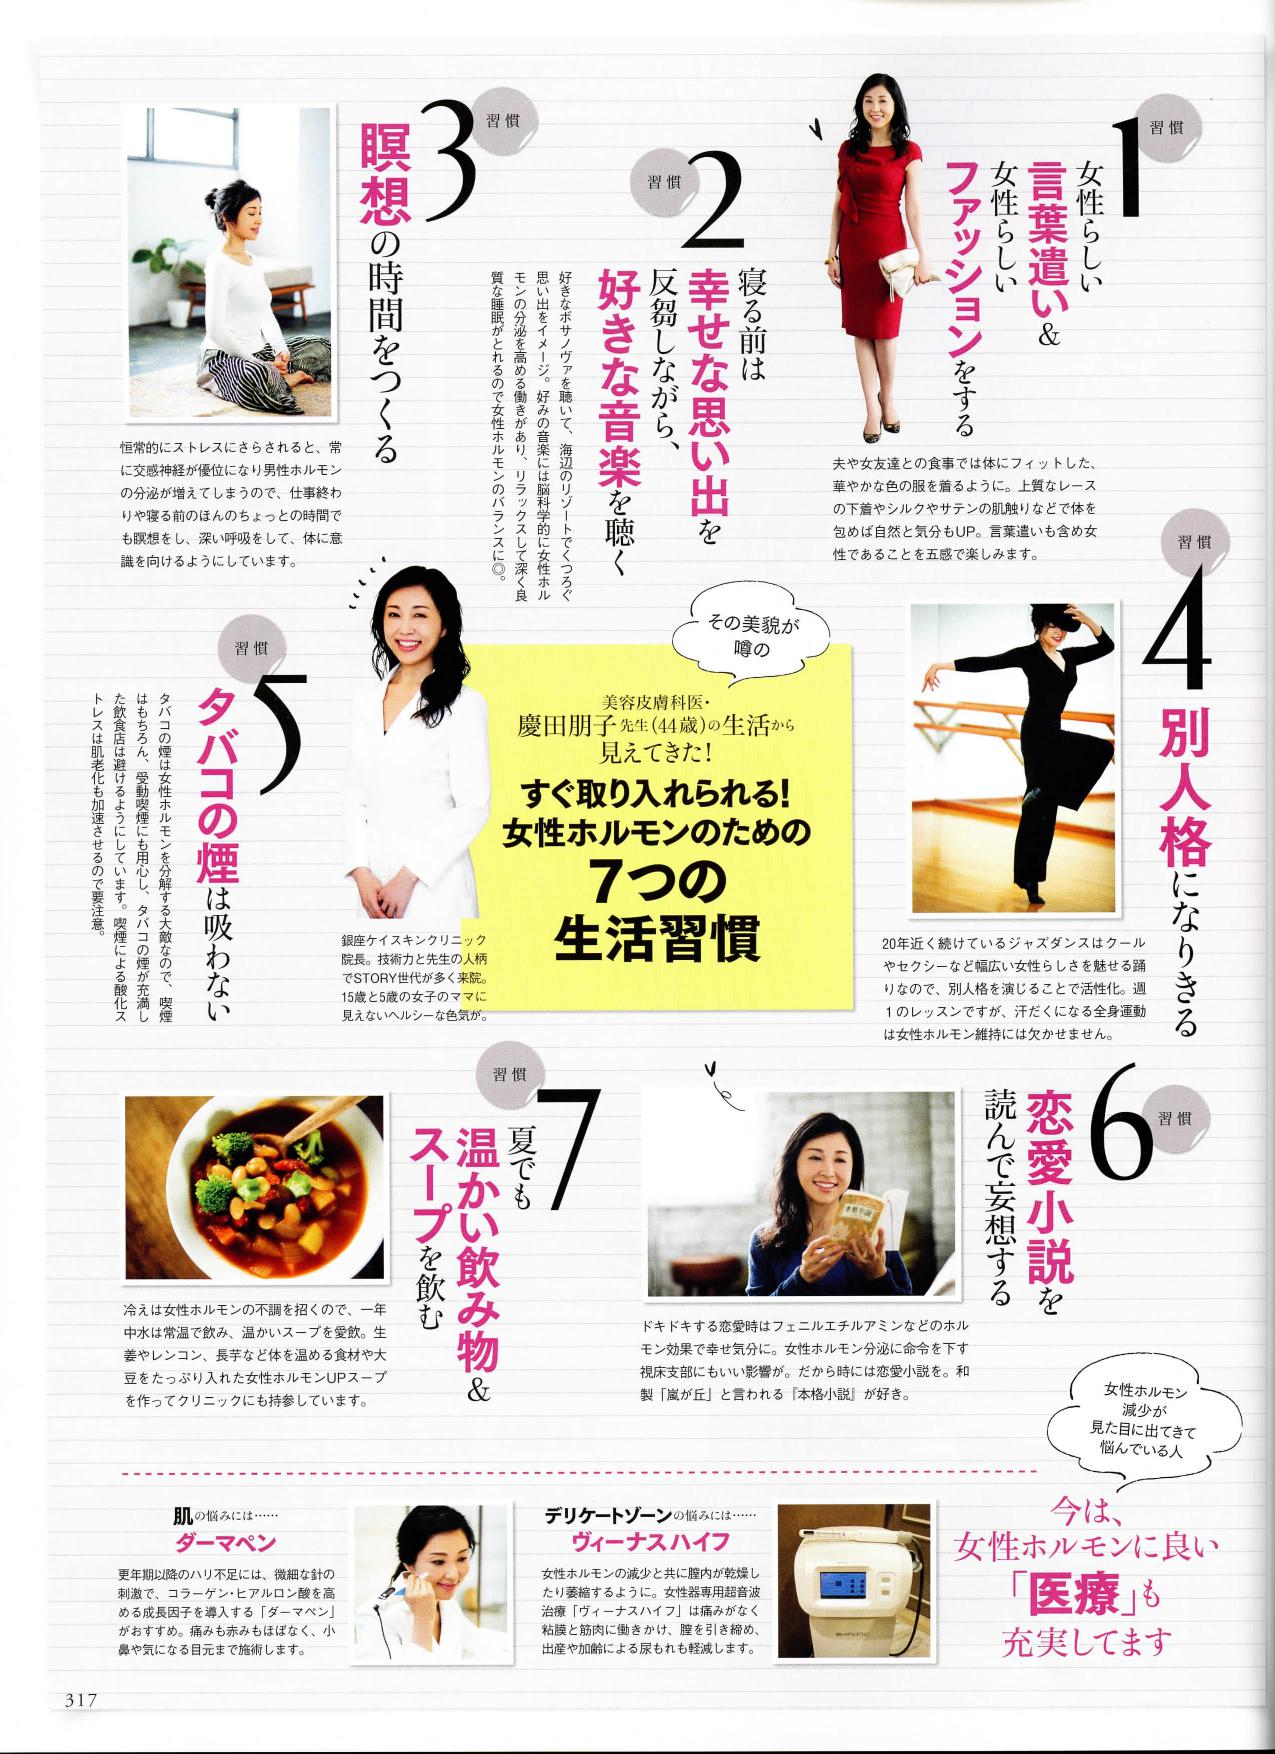 習慣
1
女性らしい
言葉遣い&
女性らしい
ファッションをする
夫や女友達との食事では体にフィットした、
華やかな色の服を着るように。上質なレース
の下着やシルクやサテンの肌触りなどで体を
包めば自然と気分もUP。言葉遣いも含め女
性であることを五感で楽しみます。
習慣
2
寝る前は
幸せな思い出を
反芻しながら、
好きな音楽を聴く
好きなボサノヴァを聴いて、海辺のリゾートでくつろぐ
思い出をイメージ。好みの音楽には脳科学的に女性ホル
モンの分泌を高める働きがあり、リラックスして深く良
質な睡眠がとれるので女性ホルモンのバランスに◎。
習慣
3
瞑想の時間をつくる
恒常的にストレスにさらされると、常
に交感神経が優位になり男性ホルモン
の分泌が増えてしまうので、仕事終わ
りや寝る前のほんのちょっとの時間で
も瞑想をし、深い呼吸をして、体に意
識を向けるようにしています。
その美貌が
噂の
美容皮膚科医・
慶田朋子先生(44歳)の生活から
見えてきた!
すぐ取り入れられる!
女性ホルモンのための
7つの
生活習慣
銀座ケイスキンクリニック
院長。技術力と先生の人柄
でSTORY世代が多く来院。
15歳と5歳の女子のママに
見えないヘルシーな色気が。
習慣
4
別人格になりきる
20年近く続けているジャズダンスはクール
やセクシーなど幅広い女性らしさを魅せる踊
りなので、別人格を演じることで活性化。週
1のレッスンですが、汗だくになる全身運動
は女性ホルモン維持には欠かせません。
習慣
5
タバコの煙は吸わない
タバコの煙は女性ホルモンを分解する大敵なので、喫煙
はもちろん、受動喫煙にも用心し、タバコの煙が充満し
た飲食店は避けるようにしています。喫煙による酸化ス
トレスは肌老化も加速させるので要注意。
習慣
6
恋愛小説を
読んで妄想する
本格小説
ドキドキする恋愛時はフェニルエチルアミンなどのホル
モン効果で幸せ気分に。女性ホルモン分泌に命令を下す
視床下部にもいい影響が。だから時には恋愛小説を。和
製「嵐が丘」と言われる『本格小説』が好き。
習慣
7
夏でも
温かい飲み物&
スープを飲む
冷えは女性ホルモンの不調を招くので、一年
中水は常温で飲み、温かいスープを愛飲。生
姜やレンコン、長芋など体を温める食材や大
豆をたっぷり入れた女性ホルモンUPスープ
を作ってクリニックにも持参しています。
女性ホルモン
減少が
見た目に出てきて
悩んでいる人
今は、
女性ホルモンに良い
「医療」も
充実してます
デリケートゾーンの悩みには……
ヴィーナスハイフ
女性ホルモンの減少と共に膣内が乾燥し
たり萎縮するように。女性器専用超音波
治療「ヴィーナスハイフ」は痛みがなく
粘膜と筋肉に働きかけ、膣を引き締め、
出産や加齢による尿もれも軽減します。
肌の悩みには……
ダーマペン
更年期以降のハリ不足には、微細な針の
刺激で、コラーゲン・ヒアルロン酸を高
める成長因子を導入する「ダーマペン」
がおすすめ。痛みも赤みもほぼなく、小
鼻や気になる目元まで施術します。
317